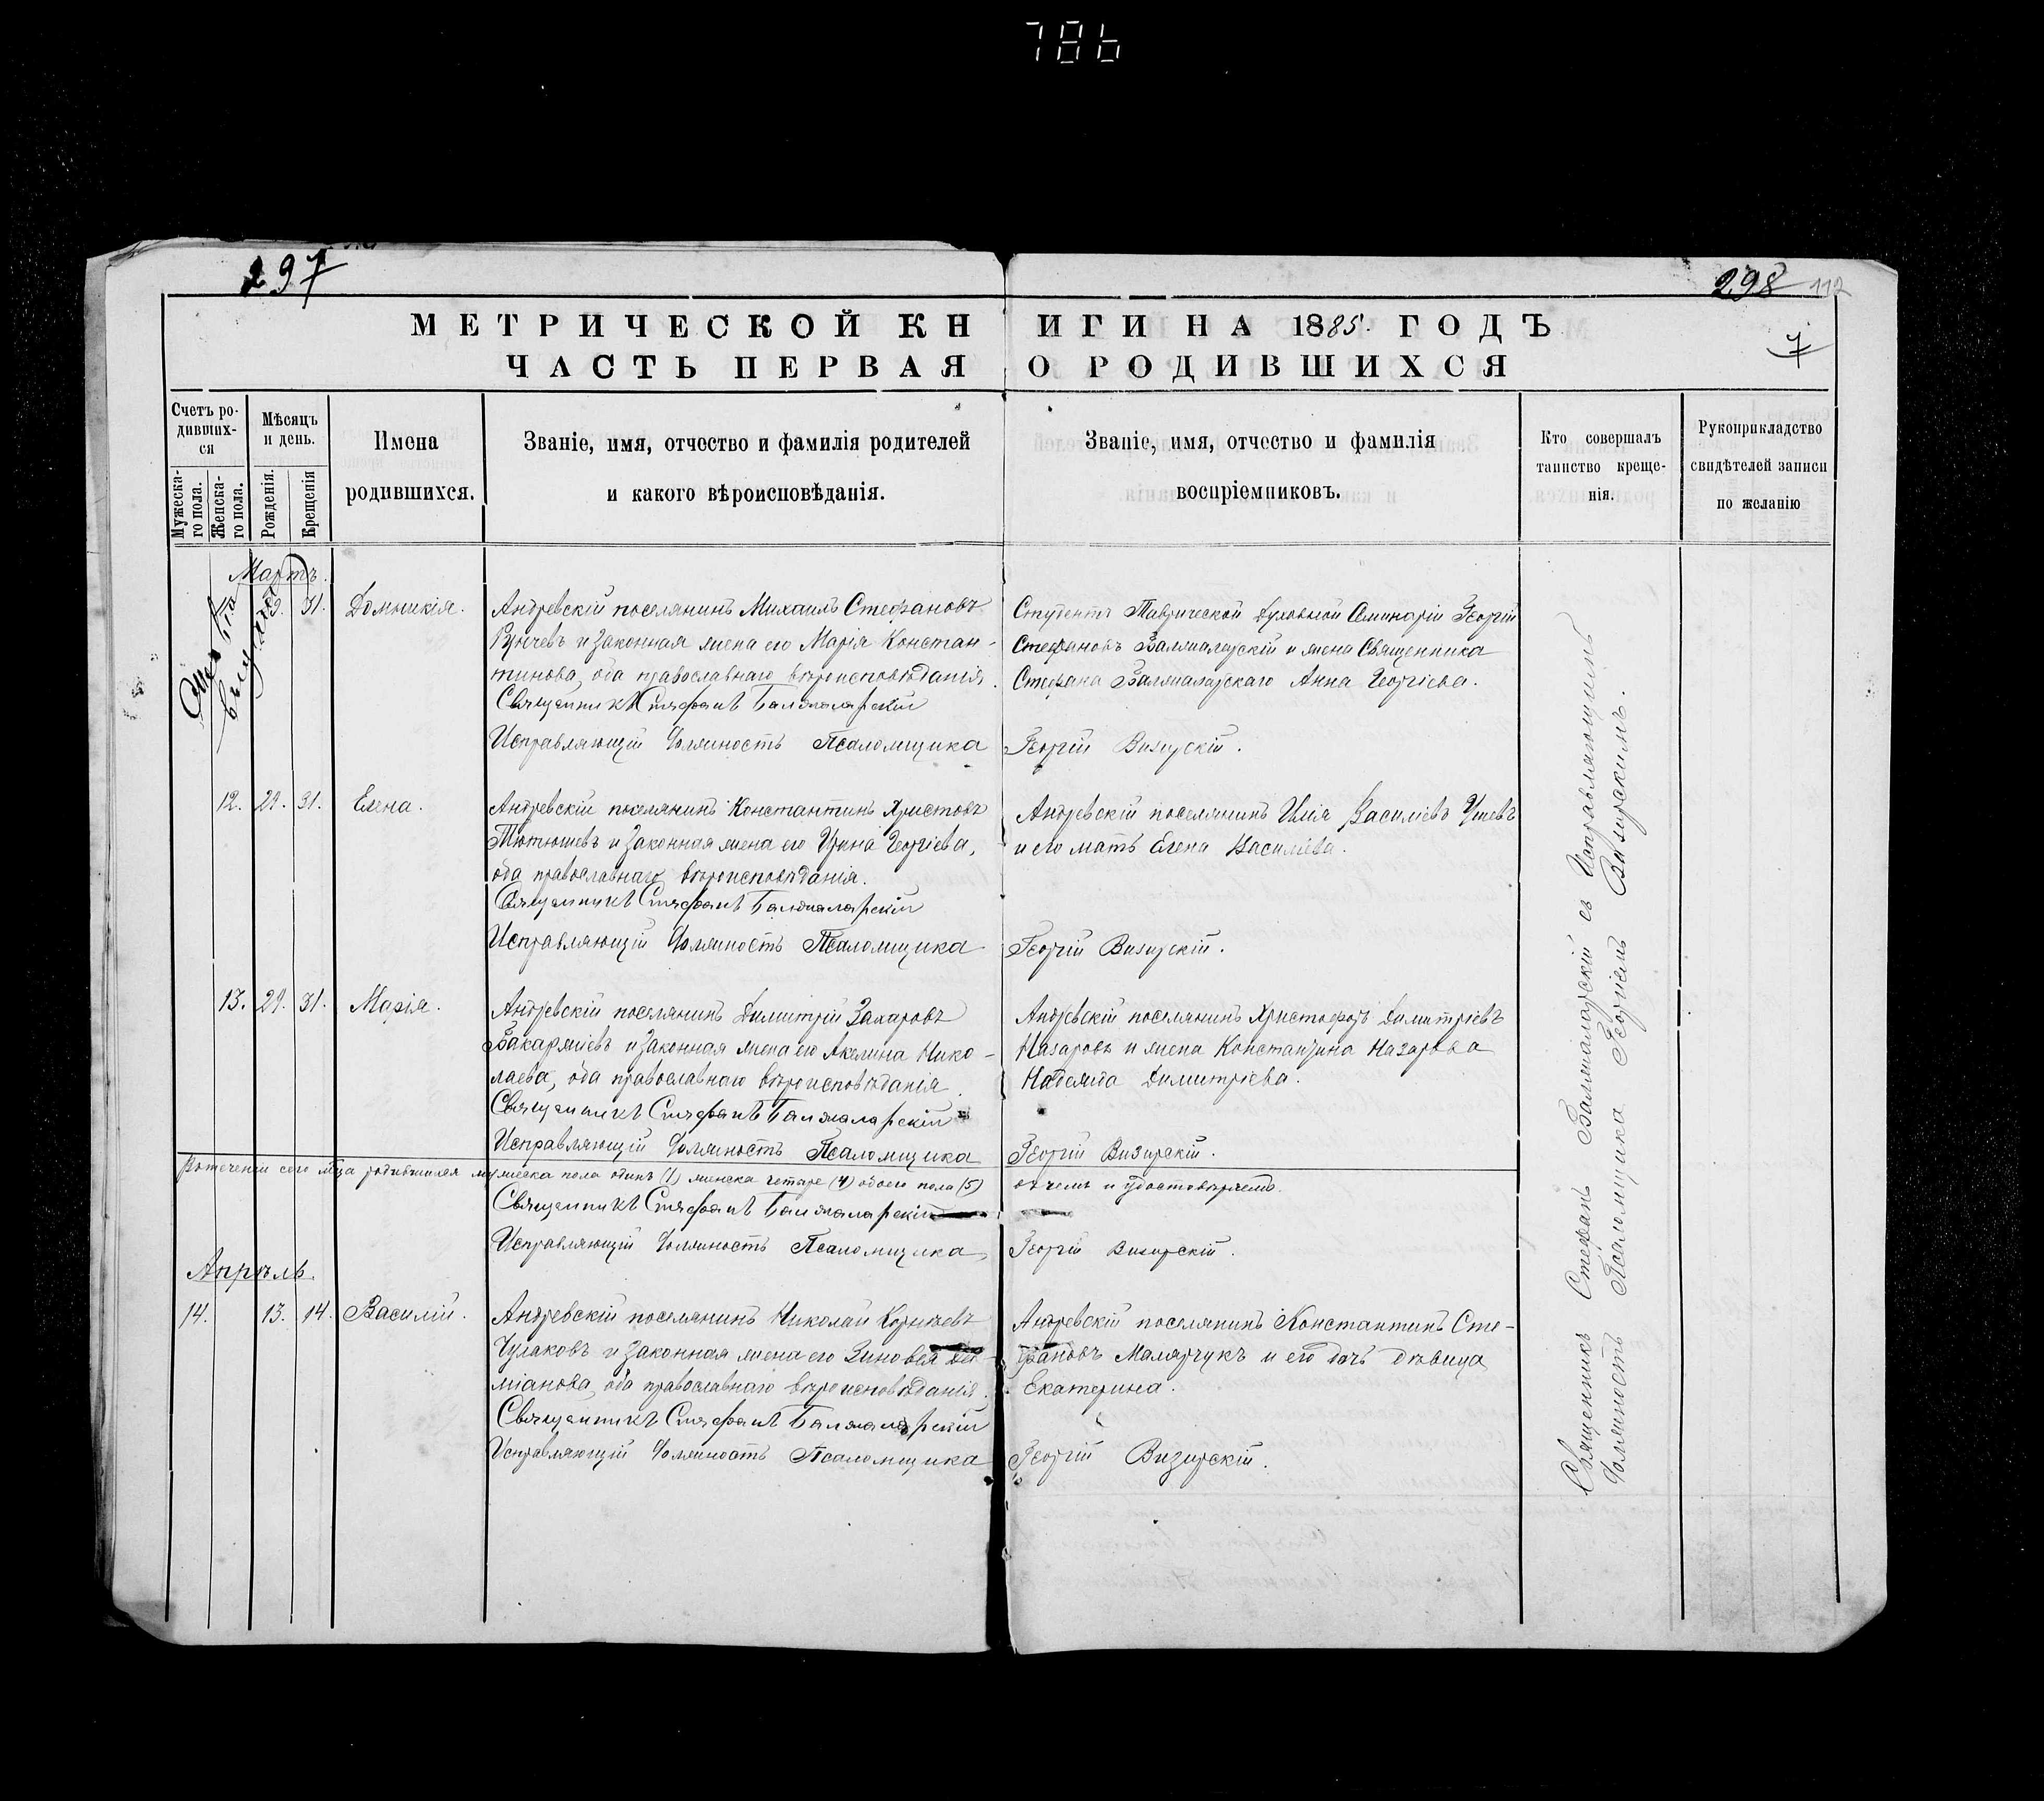 786
297
298 112
7
МЕТРИЧЕСКОЙ КНИГИ НА 1885. ГОДЪ
ЧАСТЬ ПЕРВАЯ О РОДИВШИХСЯ
Счетъ родившихся
Мужескаго пола.
Женскаго пола.
Мѣсяцъ и день.
Рожденія.
Крещенія
Имена родившихся.
Званіе, имя, отчество и фамилія родителей
и какого вѣроисповѣданія.
Званіе, имя, отчество и фамилія
воспріемниковъ.
Кто совершалъ таинство крещенія.
Рукоприкладство свидѣтелей записи по желанію
Мартъ.
31. Домникія.
Андреевскій поселянинъ Михаилъ Стефановъ
и законная жена его Марія Констан-
тинова, оба православнаго вѣроисповѣданія.
Священникъ Стефанъ Балжаларскій
Исправляющій должность Псаломщика
Студентъ Таврической Духовной Семинаріи Георгій
Стефановъ Балжаларскій и жена Священника
Стефана Балжаларскаго Анна Георгіева.
Георгій Визирскій.
12. 29. 31. Елена.
Андреевскій поселянинъ Константинъ Христовъ
Тютюшевъ и законная жена его Ирина Георгіева,
оба православнаго вѣроисповѣданія.
Священникъ Стефанъ Балжаларскій
Исправляющій должность Псаломщика
Андреевскій поселянинъ Илія Василіевъ
и его мать Елена Василіева.
Георгій Визирскій.
13. 29. 31. Марія.
Андреевскій поселянинъ Димитрій Захаровъ
и законная жена его Акелина Нико-
лаева, оба православнаго вѣроисповѣданія.
Священникъ Стефанъ Балжаларскій
Исправляющій должность Псаломщика
Андреевскій поселянинъ Христофоръ Димитріевъ
Назаровъ и жена Константина Назарова
Надежда Димитріева.
Георгій Визирскій.
Въ теченіи сего мѣсяца родившихся мужеска пола одинъ (1) женска четыре (4) обоего пола (5) въ чемъ и удостовѣряемъ.
Священникъ Стефанъ Балжаларскій
Исправляющій должность Псаломщика Георгій Визирскій.
Апрѣль.
14. 13. 14. Василій.
Андреевскій поселянинъ Николай
Чулаковъ и законная жена его Зиновея Де-
міанова, оба православнаго вѣроисповѣданія.
Священникъ Стефанъ Балжаларскій
Исправляющій должность Псаломщика
Андреевскій поселянинъ Константинъ Сте-
фановъ Малярчукъ и его дочь дѣвица
Екатерина.
Георгій Визирскій.
Священникъ Стефанъ Балжаларскій съ Исправляющимъ
должность Псаломщика Георгіемъ Визирскимъ.